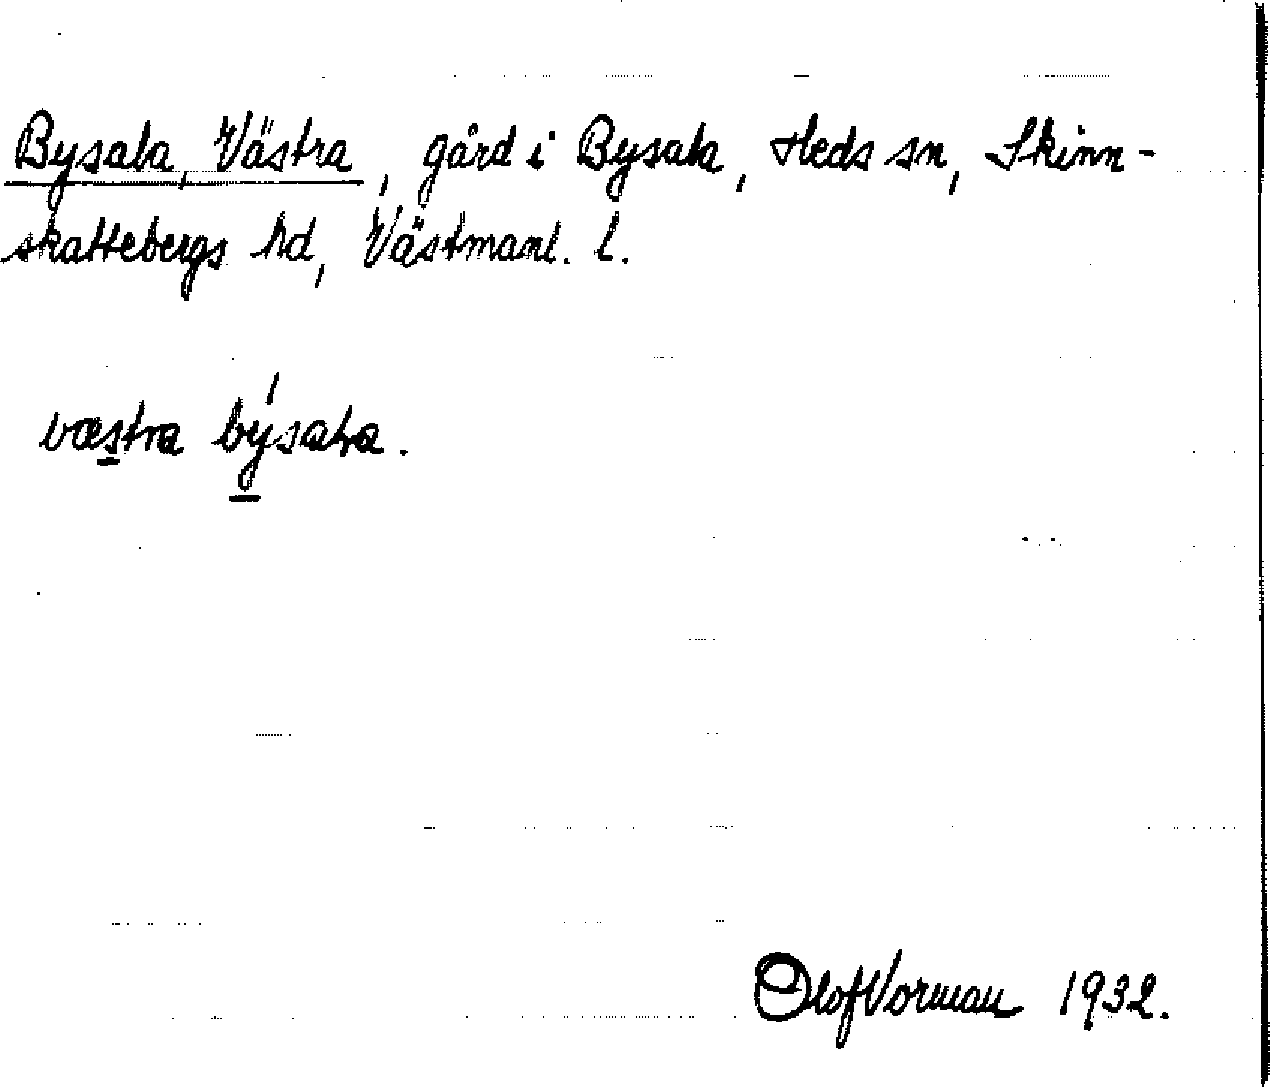 Bysala, Västra, gård i Bysala, Heds sn, Skinn-
skattebergs hd, Västmanl. l.
væstra býsaƚa.
Olof Vorman 1932.